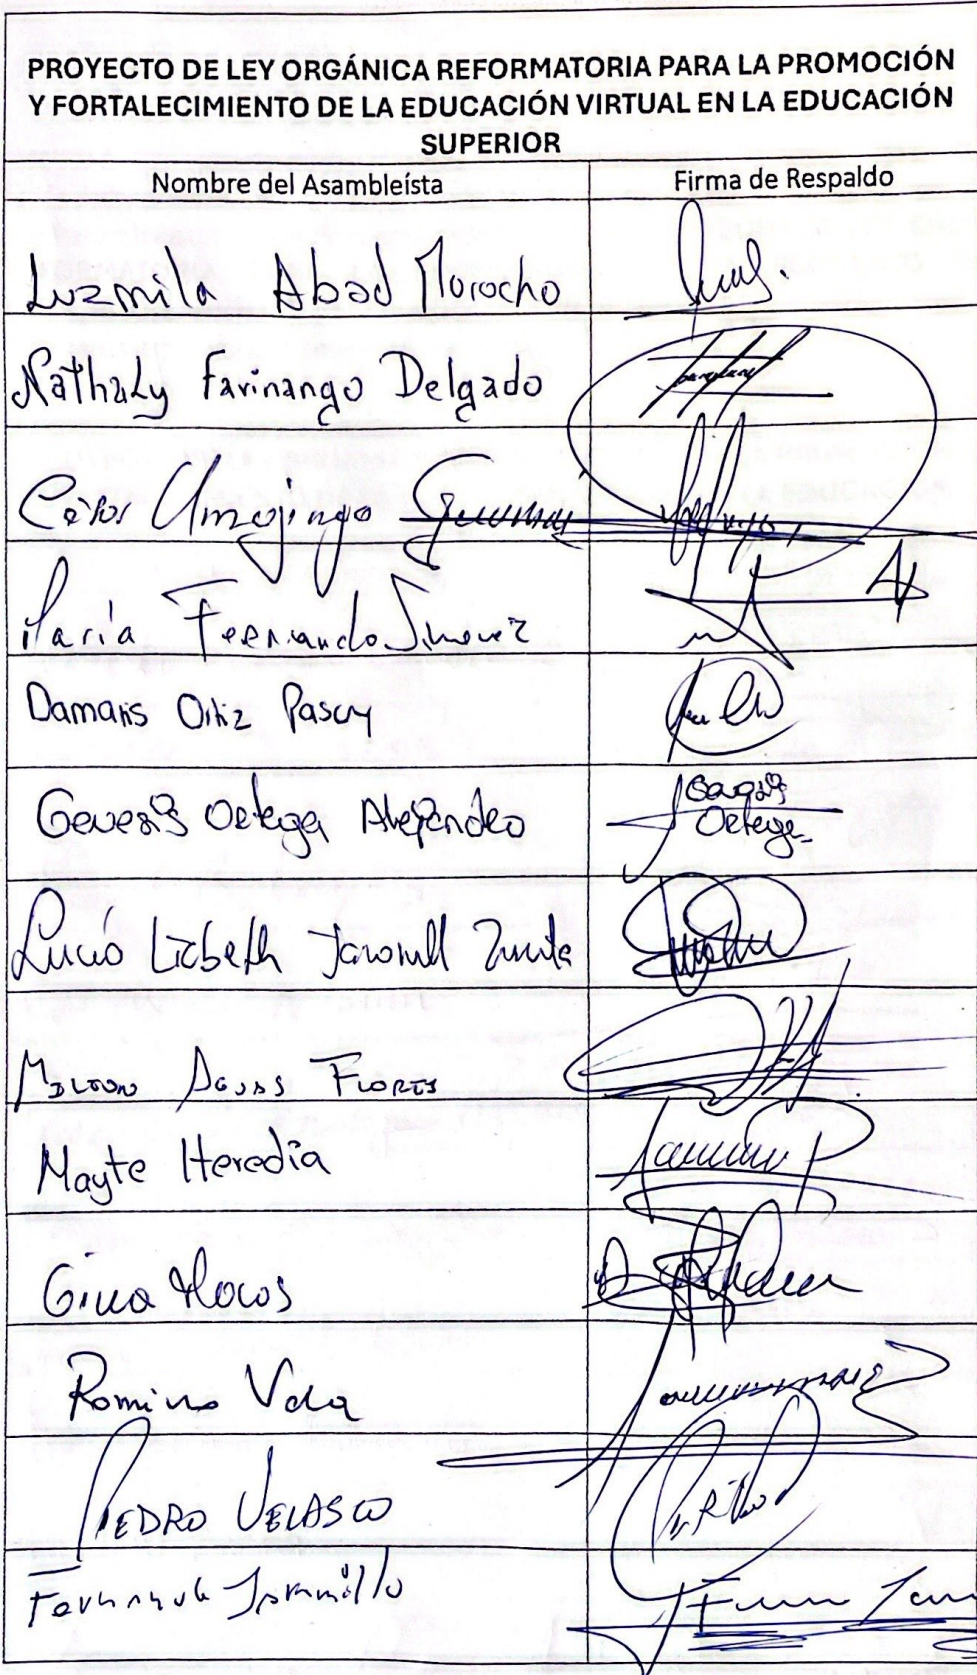 PROYECTO DE LEY ORGÁNICA REFORMATORIA PARA LA PROMOCIÓN
Y FORTALECIMIENTO DE LA EDUCACIÓN VIRTUAL EN LA EDUCACIÓN
SUPERIOR
Nombre del Asambleísta Firma de Respaldo
Luzmila Abad Morocho
Nathaly Farinango Delgado
María Fernanda Jimenez
Damaris Ortiz Pasuy
Genesis Ortega Alejandro Ortega
Lucía Lizbeth
Milton Aguas Flores
Mayte Heredia
Gina
Romina Vela
PEDRO VELASCO
Fernanda Jaramillo